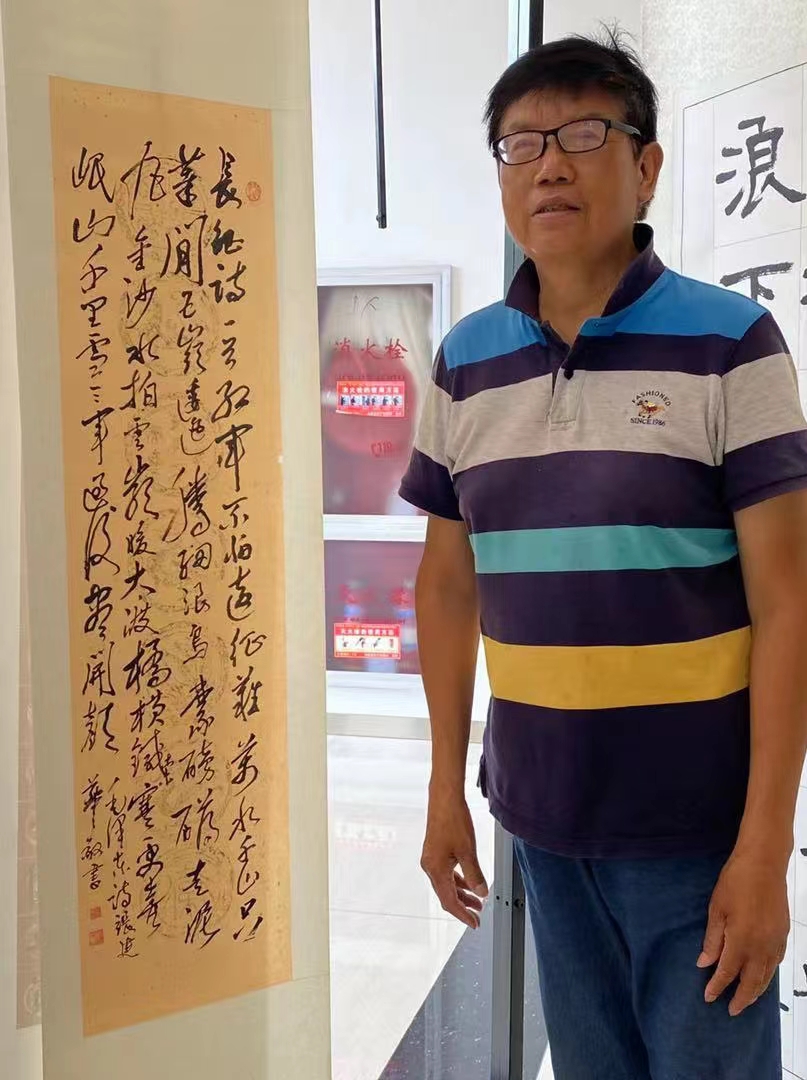 長征詩一首紅軍不怕遠征難萬水千山只
等閒五嶺逶迤騰細浪烏蒙磅礴走泥
丸金沙水拍雲崖暖大渡橋橫鐵索寒更喜
岷山千里雪三軍過後盡開顏
毛澤东詩張建
華敬書
消火栓
消火栓的使用方法
FASHIONED
SINCE 1986
浪下